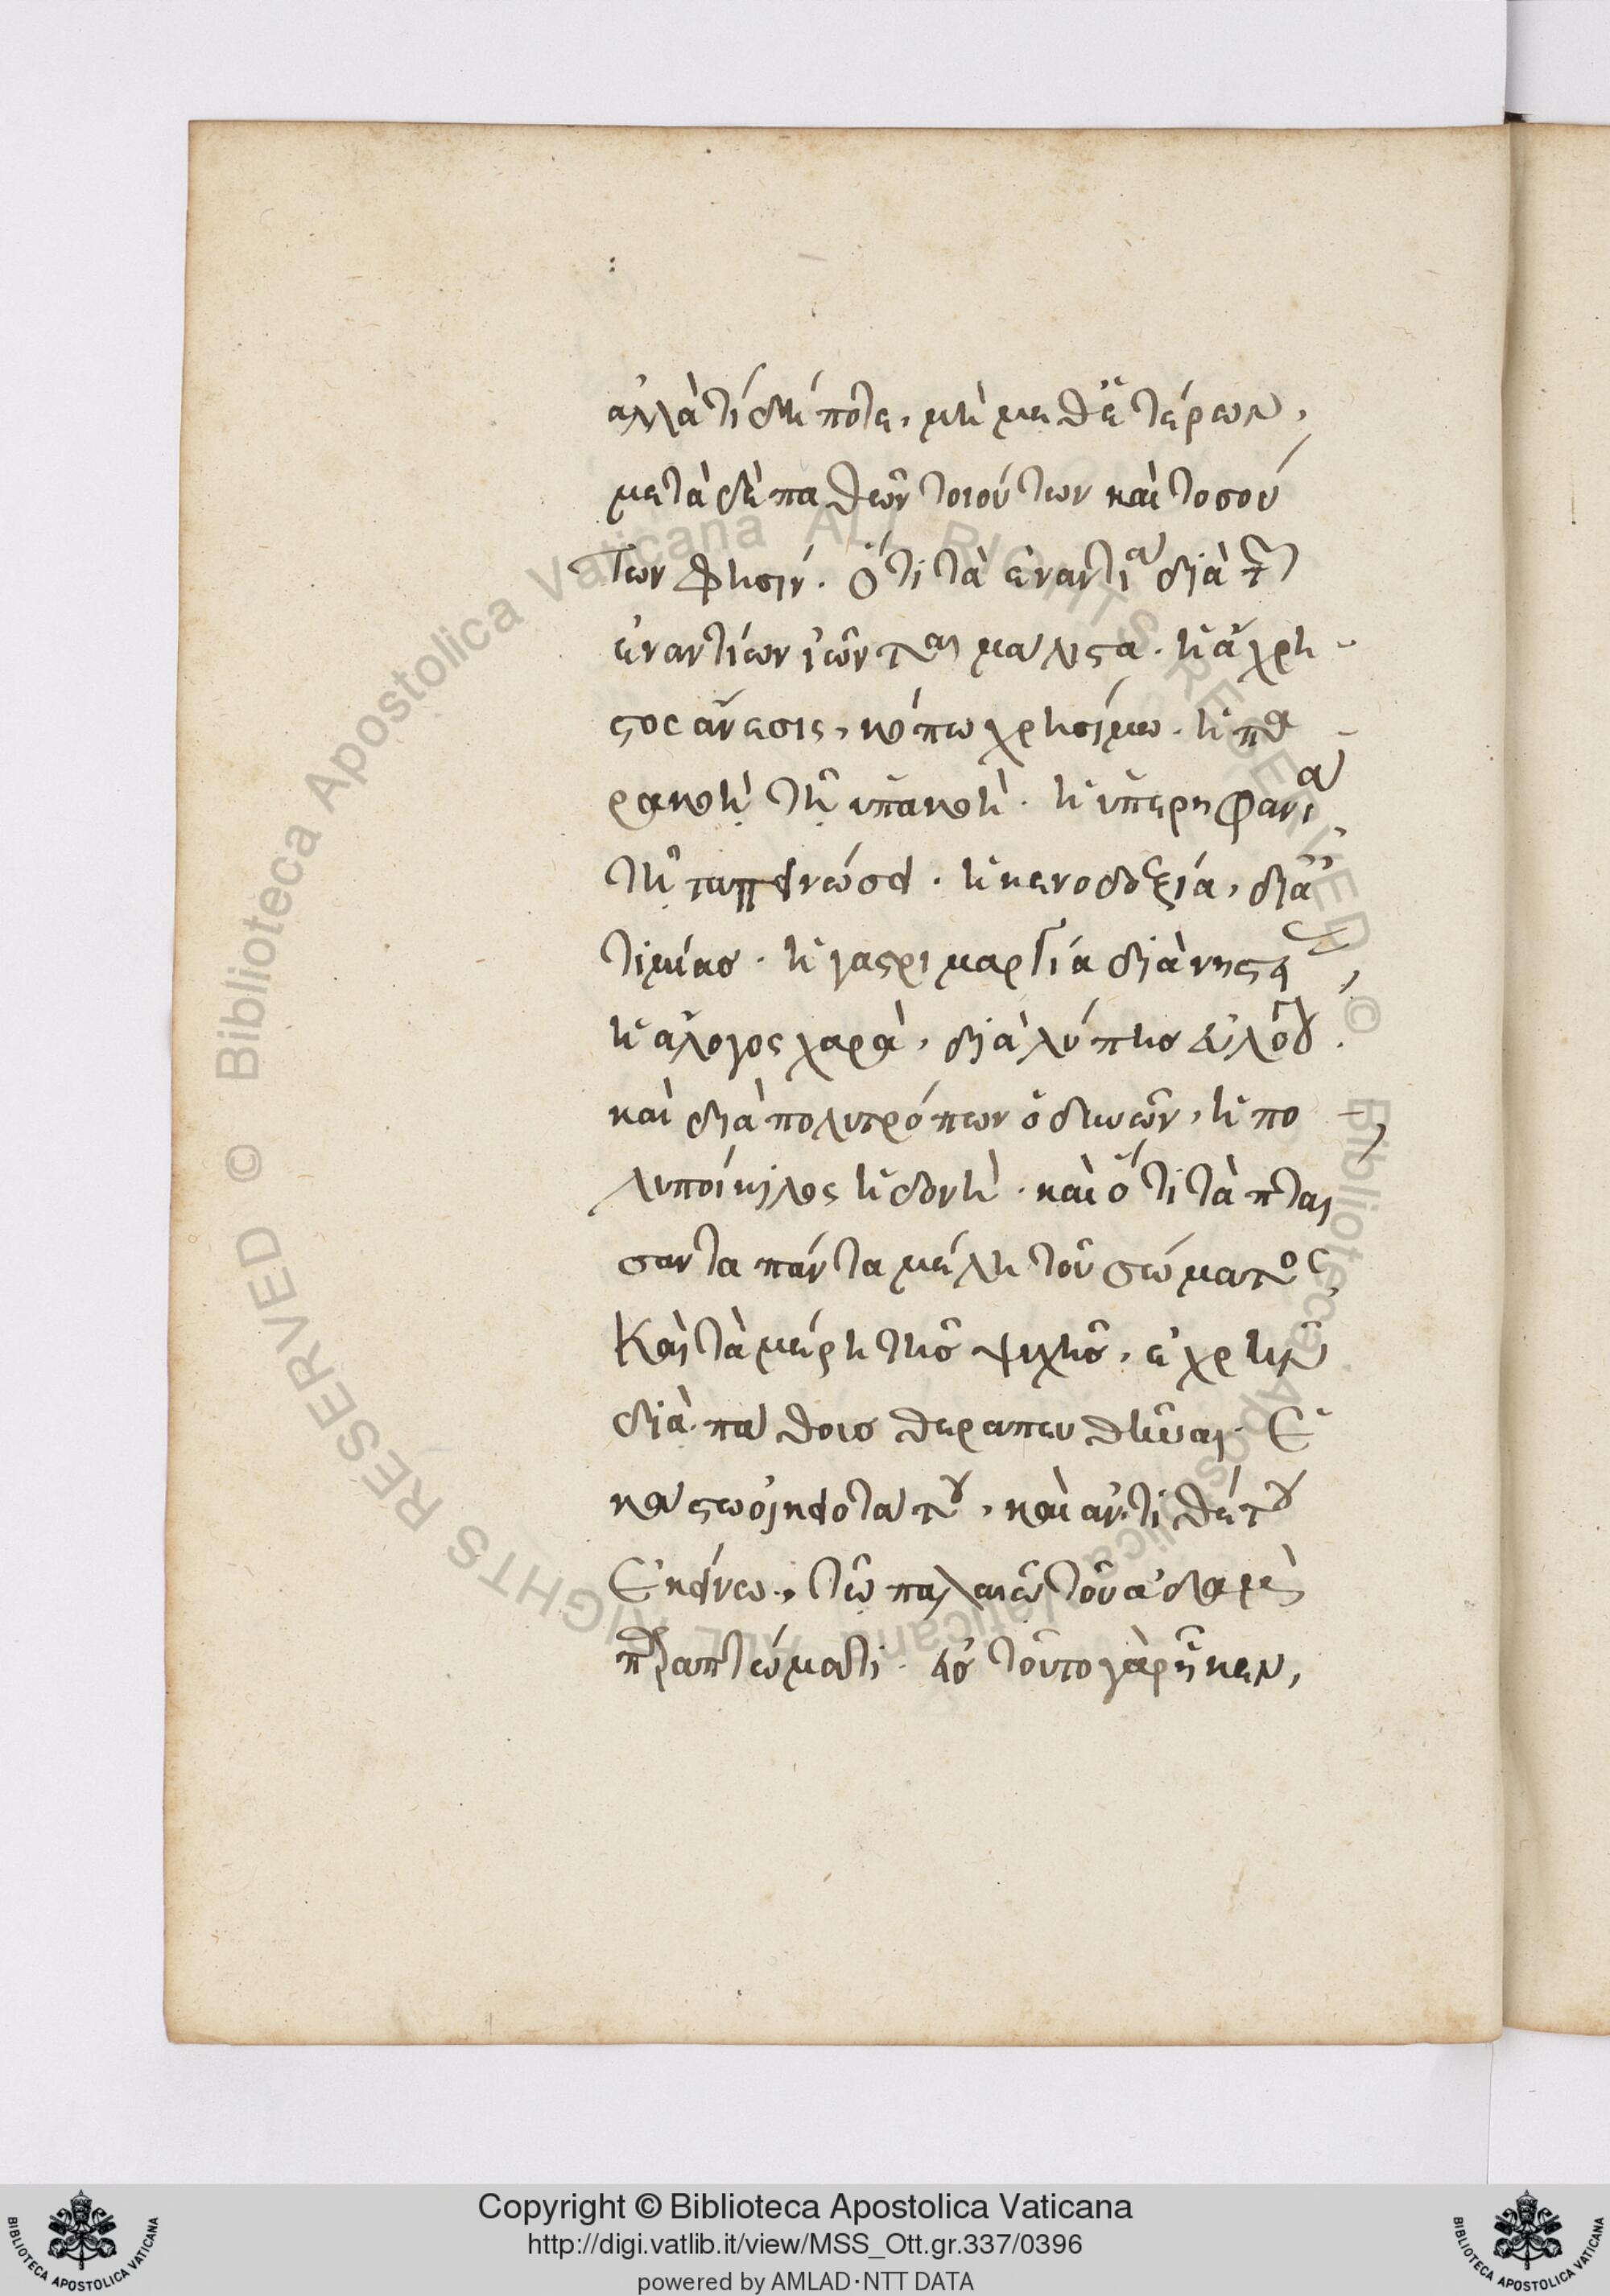 ἀλλὰ τί δή ποτε, μὴ μεθ' ἑτέρων,
μετὰ δὲ παθῶν τοιούτων καὶ τοσού
των φησίν. ὅτι τὰ ἐναντία διὰ τῶν
ἐναντίων ἰῶνται μάλιστα. ἡ ἄχρη
στος ἄνεσις, κόπω χρησίμω. ἡ πα
ρακοὴ τῆ ὑπακοῆ. ἡ ὑπερηφανία
τῆ ταπεινώσει. ἡ κενοδοξία, δι' ἀ
τιμίας. ἡ γαστριμαργία διὰ νηστείας,
ἡ ἄλογος χαρὰ, διὰ λύπης εὐλόγου.
καὶ διὰ πολυτρόπων ὀδυνῶν, ἡ πο
λυποίκιλος ἡδονή. καὶ ὅτι τὰ πταί
σαντα πάντα μέλη τοῦ σώματος
καὶ τὰ μέρη τῆς ψυχῆς, ἐχρῆν
διὰ πάθους θεραπευθῆναι. ἑ
κάστω οἰκειοτάτου, καὶ ἀντιθέτου
ἐκείνω, τῶ παλαιῶ τοῦ ἀδὰμ
παραπτώματι. εἰς τοῦτο γὰρ ἧκεν,
Copyright © Biblioteca Apostolica Vaticana
http://digi.vatlib.it/view/MSS_Ott.gr.337/0396
powered by AMLAD·NTT DATA
BIBLIOTECA APOSTOLICA VATICANA
BIBLIOTECA APOSTOLICA VATICANA
© Biblioteca Apostolica Vaticana ALL RIGHTS RESERVED
© Biblioteca Apostolica Vaticana ALL RIGHTS RESERVED